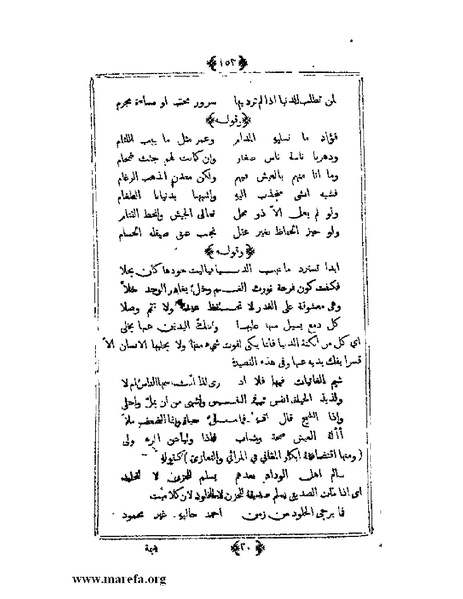 ﴿١٥٣﴾
لمن تطلب الدنيا اذا لم ترد بها سرور محب او مساءة مجرم
﴿وقوله﴾
فؤاد ما تسليه المدام وعمر مثل ما تهب اللئام
ودهر ناسه ناس صغار وان كانت لهم جثث ضخام
وما انا منهم بالعيش فيهم ولكن معدن الذهب الرغام
فشبه الشي منجذب اليه واشبهنا بدنيانا الطغام
ولو لم يعل الا ذو محل تعالى الجيش وانحط القتام
ولو حيز الحفاظ بغير عقل تجنب عنق صيقله الحسام
﴿وقوله﴾
ابدا تسترد ما تهب الدنيا فياليت جودها كان بخلا
فكفت كون فرحة تورث الغم وخل يغادر الوجد خلا
وهي معشوقة على الغدر لا تحفظ عهدا ولا تتم وصلا
كل دمع يسيل منها عليها وبفك اليدين عنها تخلى
اي كل من ابكته الدنيا فانما يبكي لفوت شيء منها ولا يخليها الانسان الا
قسرا بفك يديه عنها وفي هذه القصيدة
شيم الغانيات فيها فلا ادري لذا انث اسمها الناس ام لا
ولذيذ الحياة انفس في النفس واشهى من ان يمل واحلى
واذا الشيخ قال اف فما مل حياة وانما الضعف ملا
آلة العيش صحة وشباب فاذا وليا عن المرء ولى
(ومنها اقتضاضه ابكار المعاني في المراثي والتعازي) كقوله
سالم اهل الوداد بعدهم يسلم للحزن لا لتخليد
اي اذا مات الصديق فسلم صديقه للحزن لا للخلود لان كلا ميت
فما يرجى الخلود من زمن احمد حاليه غير محمود
﴿٢٠﴾
www.marefa.org